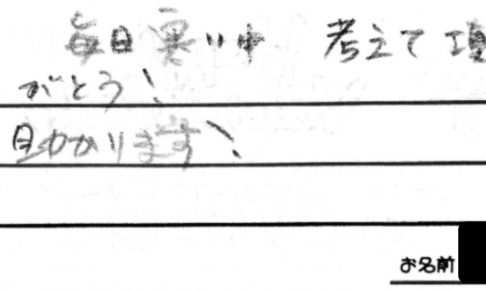 毎日寒い中 考えて項
がとう！
助かります！
お名前